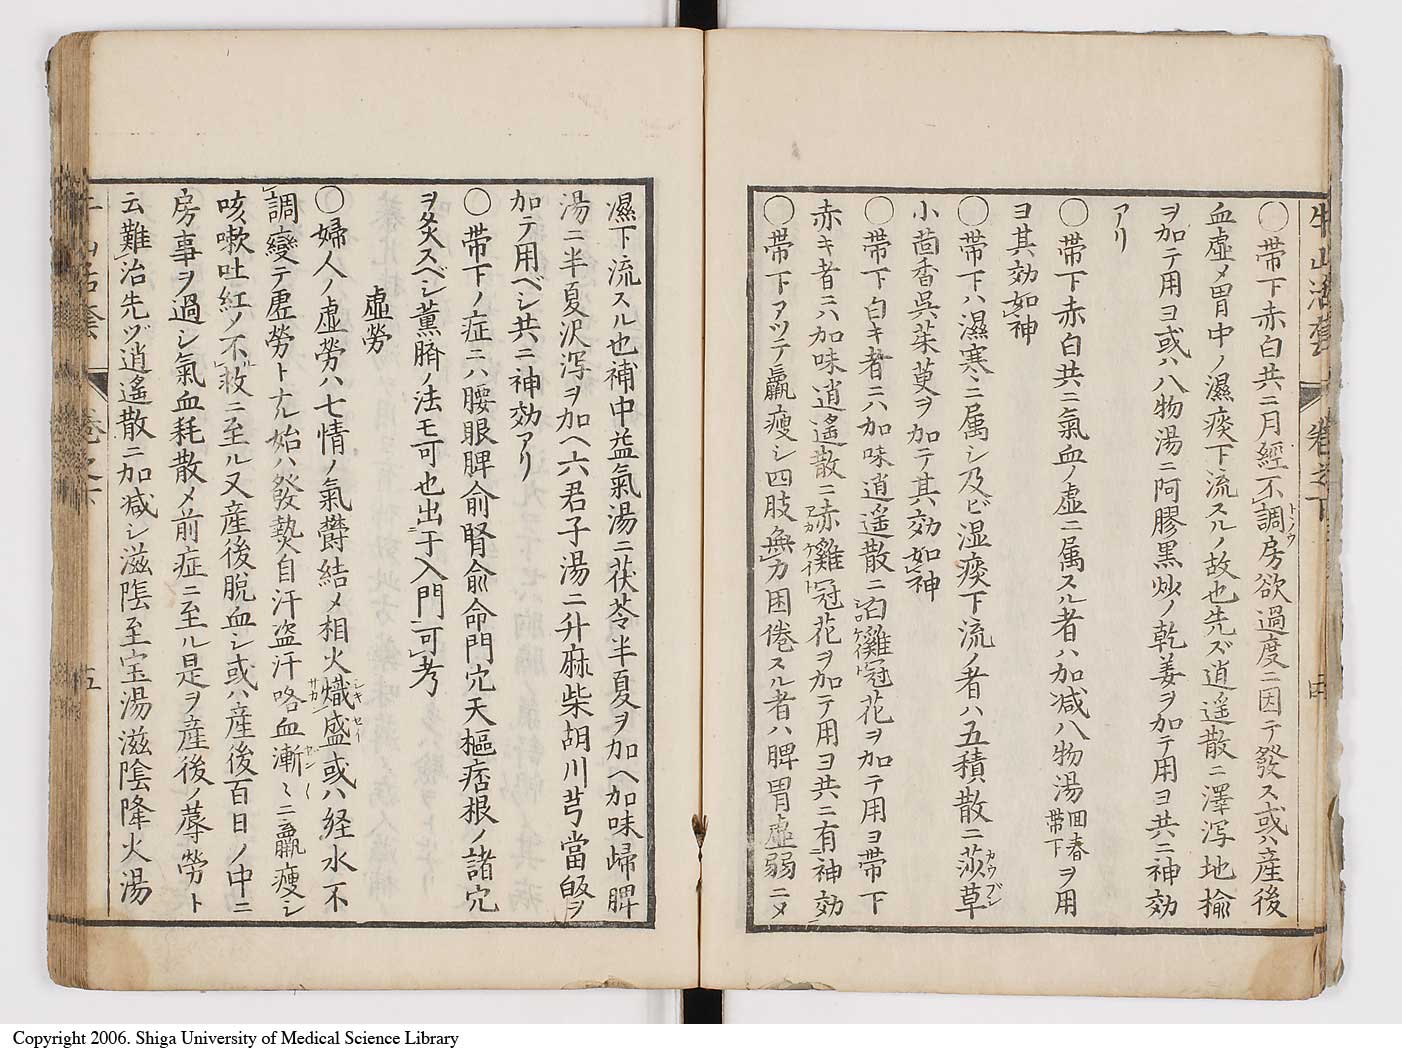 牛山活套 卷之下
○帯下赤白共ニ月経不調房欲過度ニ因テ發ス或ハ産後
血虚メ胃中ノ濕痰下流スルノ故也先ズ逍遥散ニ澤瀉地楡
ヲ加テ用ヨ或ハ八物湯ニ阿膠黒炒ノ乾姜ヲ加テ用ヨ共ニ神効
アリ
○帯下赤白共ニ氣血ノ虚ニ属スル者ハ加减八物湯回春帯下ヲ用
ヨ其効如神
○帯下ハ濕寒ニ属シ及ビ湿痰下流ノ者ハ五積散ニ莎草
小茴香呉茱萸ヲ加テ其効如神
○帯下白キ者ニハ加味逍遥散ニ白雞冠花ヲ加テ用ヨ帯下
赤キ者ニハ加味逍遥散ニ赤雞冠花ヲ加テ用ヨ共ニ有神効
○帯下アツテ羸瘦シ四肢無力困倦スル者ハ脾胃虚弱ニメ
濕下流スル也補中益氣湯ニ茯苓半夏ヲ加ヘ加味歸脾
湯ニ半夏沢瀉ヲ加ヘ六君子湯ニ升麻柴胡川芎當皈ヲ
加テ用ベシ共ニ神効アリ
○帯下ノ症ニハ腰眼脾俞腎俞命門穴天樞痞根ノ諸穴
ヲ灸スベシ薫臍ノ法モ可也出于入門可考
虚勞
○婦人ノ虚勞ハ七情ノ氣欝結メ相火熾盛或ハ経水不
調變テ虚勞ト尤始ハ發熱自汗盗汗咯血漸〻ニ羸瘦シ
咳嗽吐紅ノ不救ニ至ル又産後脱血シ或ハ産後百日ノ中ニ
房事ヲ過シ氣血耗散メ前症ニ至ル是ヲ産後ノ蓐勞ト
云難治先ヅ逍遙散ニ加减シ滋陰至宝湯滋陰降火湯
卷之下 五